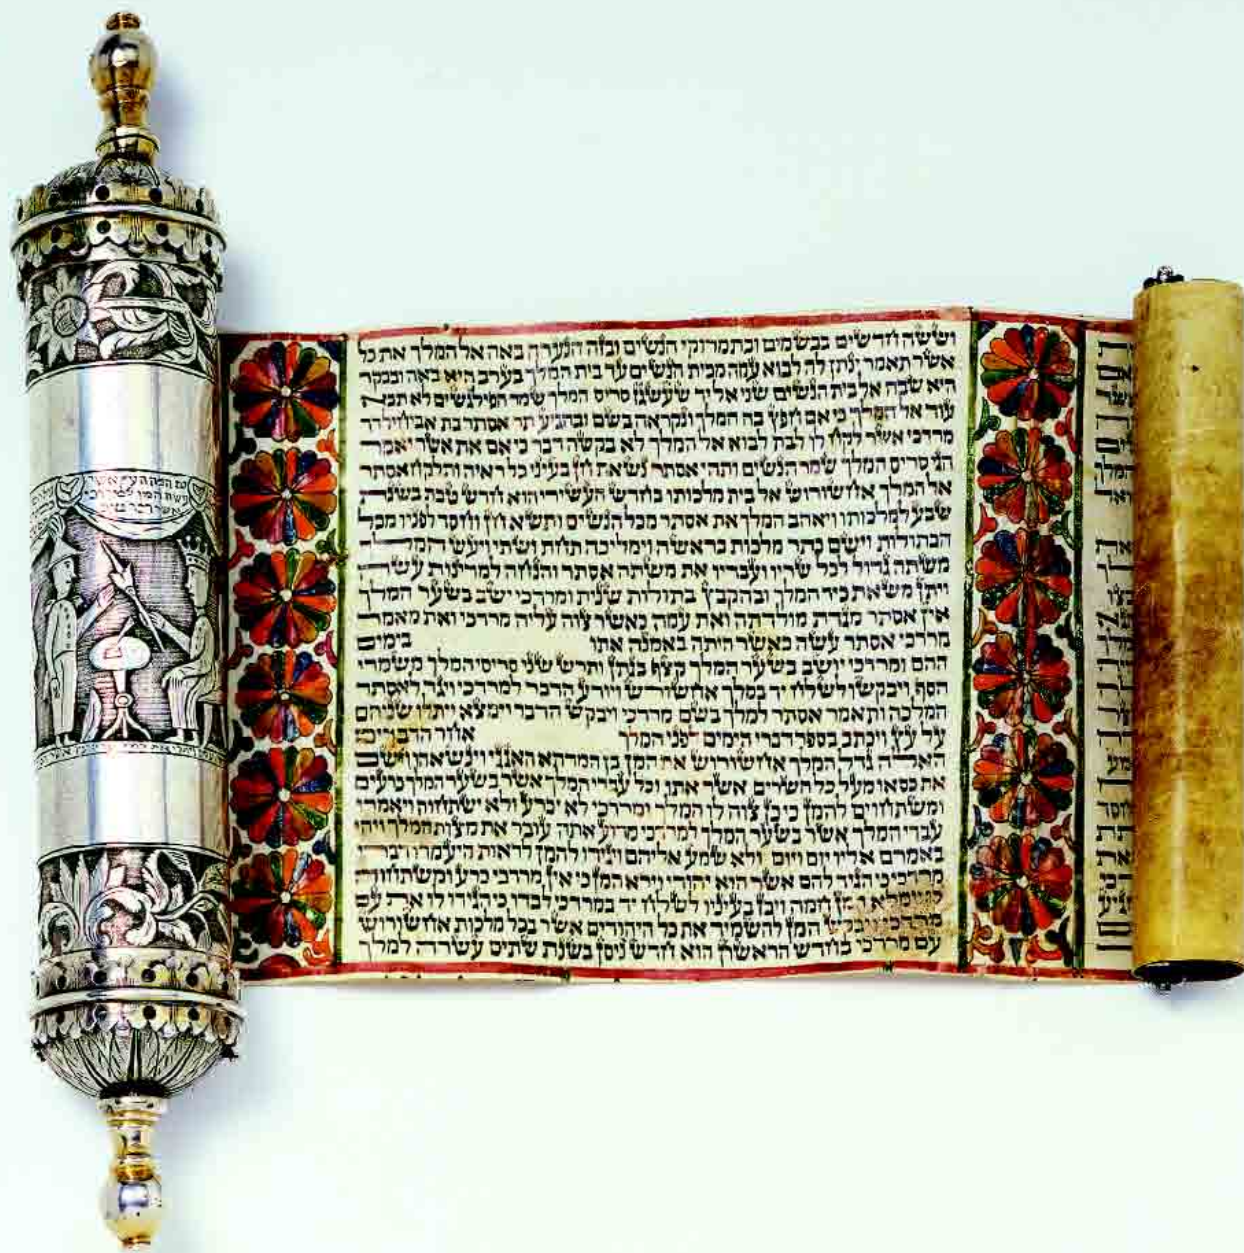 וששה חדשים בבשמים ובתמרוקי הנשים ובזה הנערה באה אל המלך את כל
אשר תאמר ינתן לה לבוא עמה מבית הנשים עד בית המלך בערב היא באה ובבקר
היא שבה אל בית הנשים שני אל יד שעשגז סריס המלך שמר הפילגשים לא תבא
עוד אל המלך כי אם חפץ בה המלך ונקראה בשם ובהגיע תר אסתר בת אביחיל דד
מרדכי אשר לקח לו לבת לבוא אל המלך לא בקשה דבר כי אם את אשר יאמר
הגי סריס המלך שמר הנשים ותהי אסתר נשאת חן בעיני כל ראיה ותלקח אסתר
אל המלך אחשורוש אל בית מלכותו בחדש העשירי הוא חדש טבת בשנת
שבע למלכותו ויאהב המלך את אסתר מכל הנשים ותשא חן וחסד לפניו מכל
הבתולות וישם כתר מלכות בראשה וימליכה תחת ושתי ויעש המלך
משתה גדול לכל שריו ועבדיו את משתה אסתר והנחה למדינות עשה
ויתן משאת כיד המלך ובהקבץ בתולות שנית ומרדכי ישב בשער המלך
אין אסתר מגדת מולדתה ואת עמה כאשר צוה עליה מרדכי ואת מאמר
מרדכי אסתר עשה כאשר היתה באמנה אתו בימים
ההם ומרדכי יושב בשער המלך קצף בגתן ותרש שני סריסי המלך משמרי
הסף ויבקשו לשלח יד במלך אחשורוש ויודע הדבר למרדכי ויגד לאסתר
המלכה ותאמר אסתר למלך בשם מרדכי ויבקש הדבר וימצא ויתלו שניהם
על עץ ויכתב בספר דברי הימים לפני המלך אחר הדברים
האלה גדל המלך אחשורוש את המן בן המדתא האגגי וינשאהו וישם
את כסאו מעל כל השרים אשר אתו וכל עבדי המלך אשר בשער המלך כרעים
ומשתחוים להמן כי כן צוה לו המלך ומרדכי לא יכרע ולא ישתחוה ויאמרו
עבדי המלך אשר בשער המלך למרדכי מדוע אתה עובר את מצות המלך ויהי
באמרם אליו יום ויום ולא שמע אליהם ויגידו להמן לראות היעמדו דברי
מרדכי כי הגיד להם אשר הוא יהודי וירא המן כי אין מרדכי כרע ומשתחוה
לו וימלא המן חמה ויבז בעיניו לשלח יד במרדכי לבדו כי הגידו לו את עם
מרדכי ויבקש המן להשמיד את כל היהודים אשר בכל מלכות אחשורוש
עם מרדכי בחדש הראשון הוא חדש ניסן בשנת שתים עשרה למלך
העץ אשר
עשה המן למרדכי
אשר דבר טוב